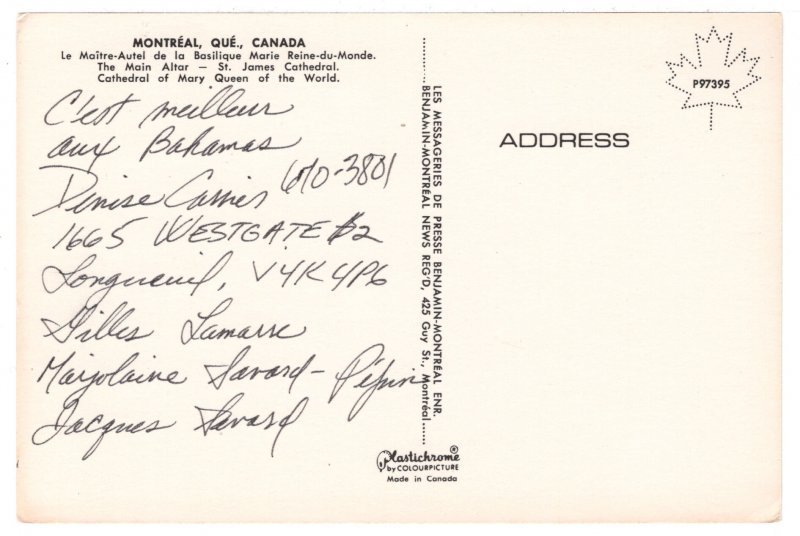 MONTRÉAL, QUÉ., CANADA
Le Maître-Autel de la Basilique Marie Reine-du-Monde.
The Main Altar — St. James Cathedral.
Cathedral of Mary Queen of the World.
C'est meilleur
aux Bahamas
Denise Carrier 670-3801
1665 WESTGATE #2
Longueuil, V4K 4P6
Gilles Lamarre
Marjolaine Savard-Pépin
Jacques Savard
LES MESSAGERIES DE PRESSE BENJAMIN-MONTRÉAL ENR.
BENJAMIN-MONTRÉAL NEWS REG'D, 425 Guy St., Montréal.
Plastichrome®
by COLOURPICTURE
Made in Canada
P97395
ADDRESS